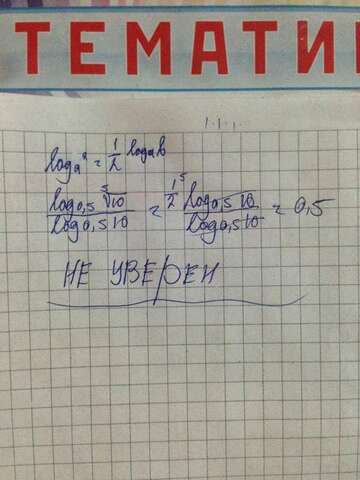 ТЕМАТИ
log_a^a = 1/2 log_a b
log_0,5 ⁵√10 / log_0,5 10 = 1/2 ⁵ log_0,5 10 / log_0,5 10 = 0,5
НЕ УВЕРЕН